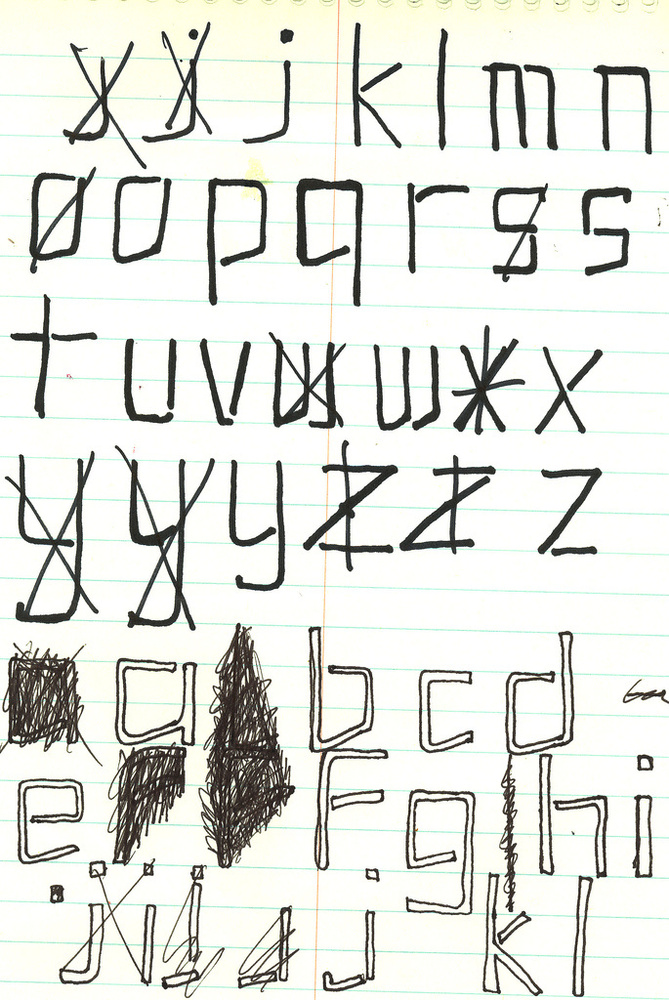 j k l m n
o p q r s
t u v w x
y z
a b c d
e F g h i
j k l